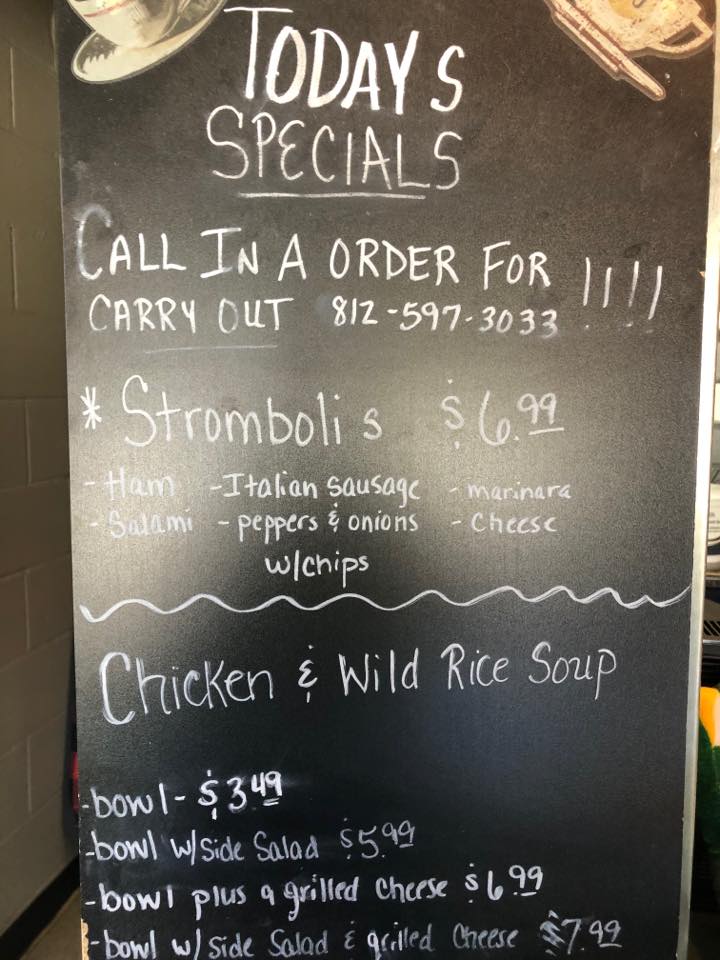 TODAYS
SPECIALS
CALL IN A ORDER FOR
CARRY OUT 812-597-3033 !!!!
* Strombolis $6.99
- Ham - Italian Sausage - marinara
- Salami - peppers & onions - cheese
w/chips
Chicken & Wild Rice Soup
- bowl - $3.49
- bowl w/ Side Salad $5.99
- bowl plus a grilled cheese $6.99
- bowl w/ side Salad & grilled Cheese $7.99